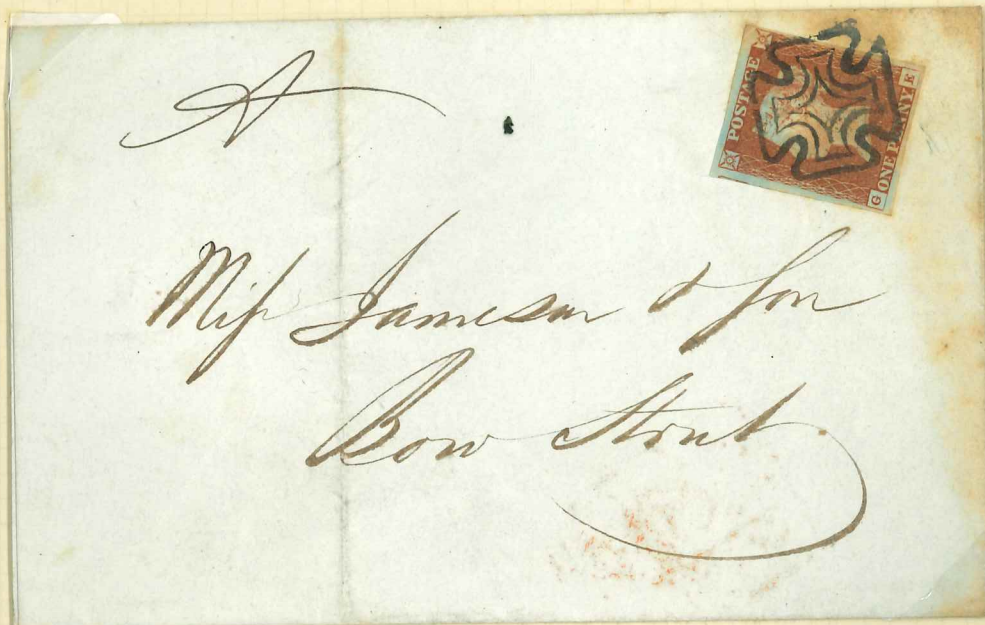 A
POSTAGE
ONE PENNY
G E
Miſs Jameson & Son
Bow Street.